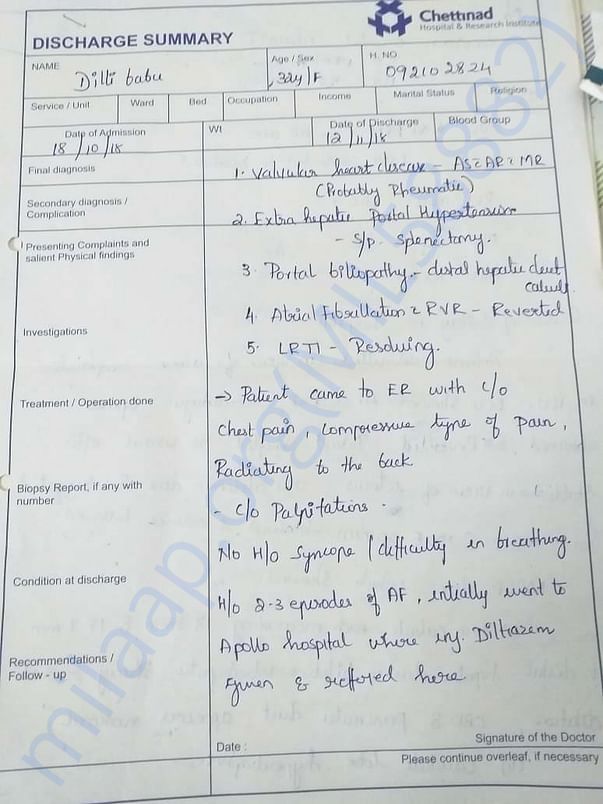 Chettinad
Hospital & Research Institute
DISCHARGE SUMMARY
NAME
Dilli babu
Age / Sex
32y/F
H. NO
092102824
Service / Unit
Ward
Bed
Occupation
Income
Marital Status
Religion
Date of Admission
18/10/18
Wt
Date of Discharge
12/11/18
Blood Group
Final diagnosis
1. Valvular heart disease - AS c AR c MR
(Probably Rheumatic)
Secondary diagnosis /
Complication
2. Extra hepatic Portal Hypertension
- s/p. Splenectomy.
Presenting Complaints and
salient Physical findings
3. Portal biliopathy - distal hepatic duct
calculi
4. Atrial Fibrillation c RVR - Reverted
Investigations
5. LRTI - Resolving.
Treatment / Operation done
→ Patient came to ER with c/o
chest pain, compressive type of pain,
Radiating to the back
Biopsy Report, if any with
number
- c/o Palpitations.
No H/o Syncope / difficulty in breathing.
Condition at discharge
H/o 2-3 episodes of AF, initially went to
Apollo hospital where inj. Diltiazem
Recommendations /
Follow - up
given & reffered here.
Date :
Signature of the Doctor
Please continue overleaf, if necessary